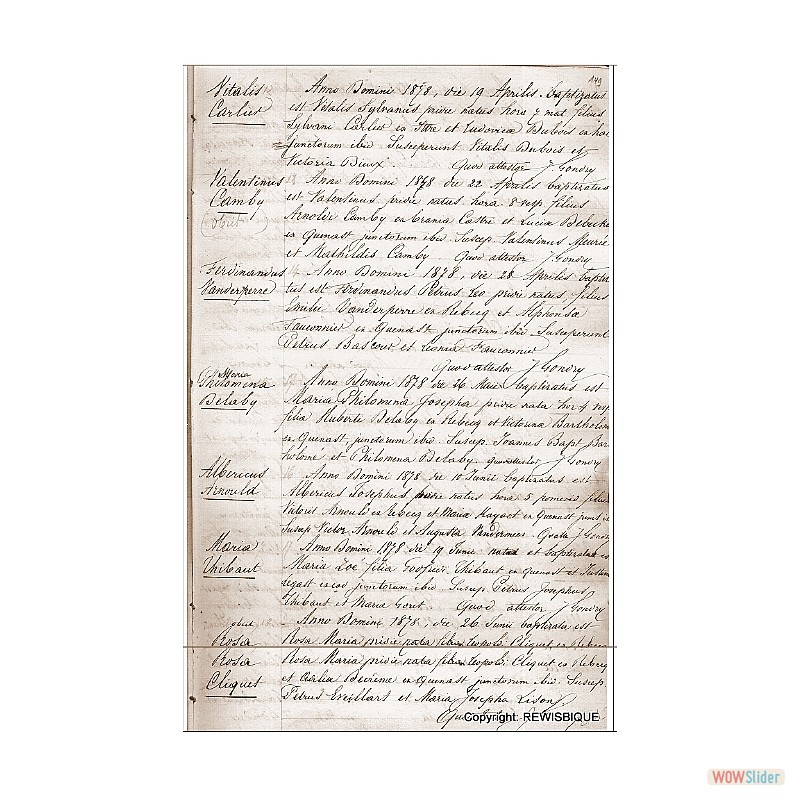 149
Vitalis Carlier
Anno Domini 1878, die 19 Aprilis baptizatus
est Vitalis Sylvanus pridie natus hora 7 mat filius
Sylvani Carlier ex Ittre et Ludovica Dubois ex hac
junctorum ibid. Susceperunt Vitalis Dubois et
Victoria Dieux. Quod attestor J Gondry
Valentinus Camby
obiit
Anno Domini 1878 die 22 Aprilis baptizatus
est Valentinus pridie natus hora 8 vesp filius
Arnoldi Camby ex Crania Castre et Lucia Debecke
ex Quenast junctorum ibid. Suscep. Valentinus Meurie
et Mathildis Camby. Quod attestor J. Gondry
Ferdinandus Vanderperre
Anno Domini 1878, die 28 Aprilis baptiz
tus est Ferdinandus Petrus Leo pridie natus filius
Emilii Vanderperre ex Rebecq et Alphonsa
Fauconnier ex Quenast junctorum ibid. Susceperunt
Petrus Bascour et Leonia Fauconnier
Quod attestor J Gondry
Maria
Philomena Delaby
Anno Domini 1878 die 26 Maii baptizatus est
Maria Philomena Josepha pridie nata hor 4 vesp
filia Huberti Delaby ex Rebecq et Victorina Bartholom
ex Quenast, junctorum ibid. Suscep. Joannes Bapt Bar
holomé et Philomena Delaby. quod attestor J Gondry
Albericus Arnould
Anno Domini 1878 die 10 Junii baptizatus est
Albericus Josephus pridie natus hora 5 pomerid filius
Arnould ex Rebecq et Maria Hayaert ex Quenast
Suscep Victor Arnould et Augusta Vandermees. J Gondry
Maria Thibaut
Anno Domini 1878 die 19 Junii nata et baptizata est
Maria Zoe filia Thibaut ex Quenast et
ex eod junctorum ibid. Suscep Petrus Josephus
Thibaut et Maria Gout. Quod attestor J Gondry
obiit
Anno Domini 1878, die 26 Junii baptizata est
Rosa
Rosa Maria pridie nata filia Leopoldi Cliquet ex Rebecq
Rosa Cliquet
Rosa Maria pridie nata filia Leopoldi Cliquet ex Rebecq
et Derienne ex Quenast junctorum ibid. Suscep.
Petrus Evillart et Maria Josepha Lison
Copyright: REWISBIQUE
WOWSlider